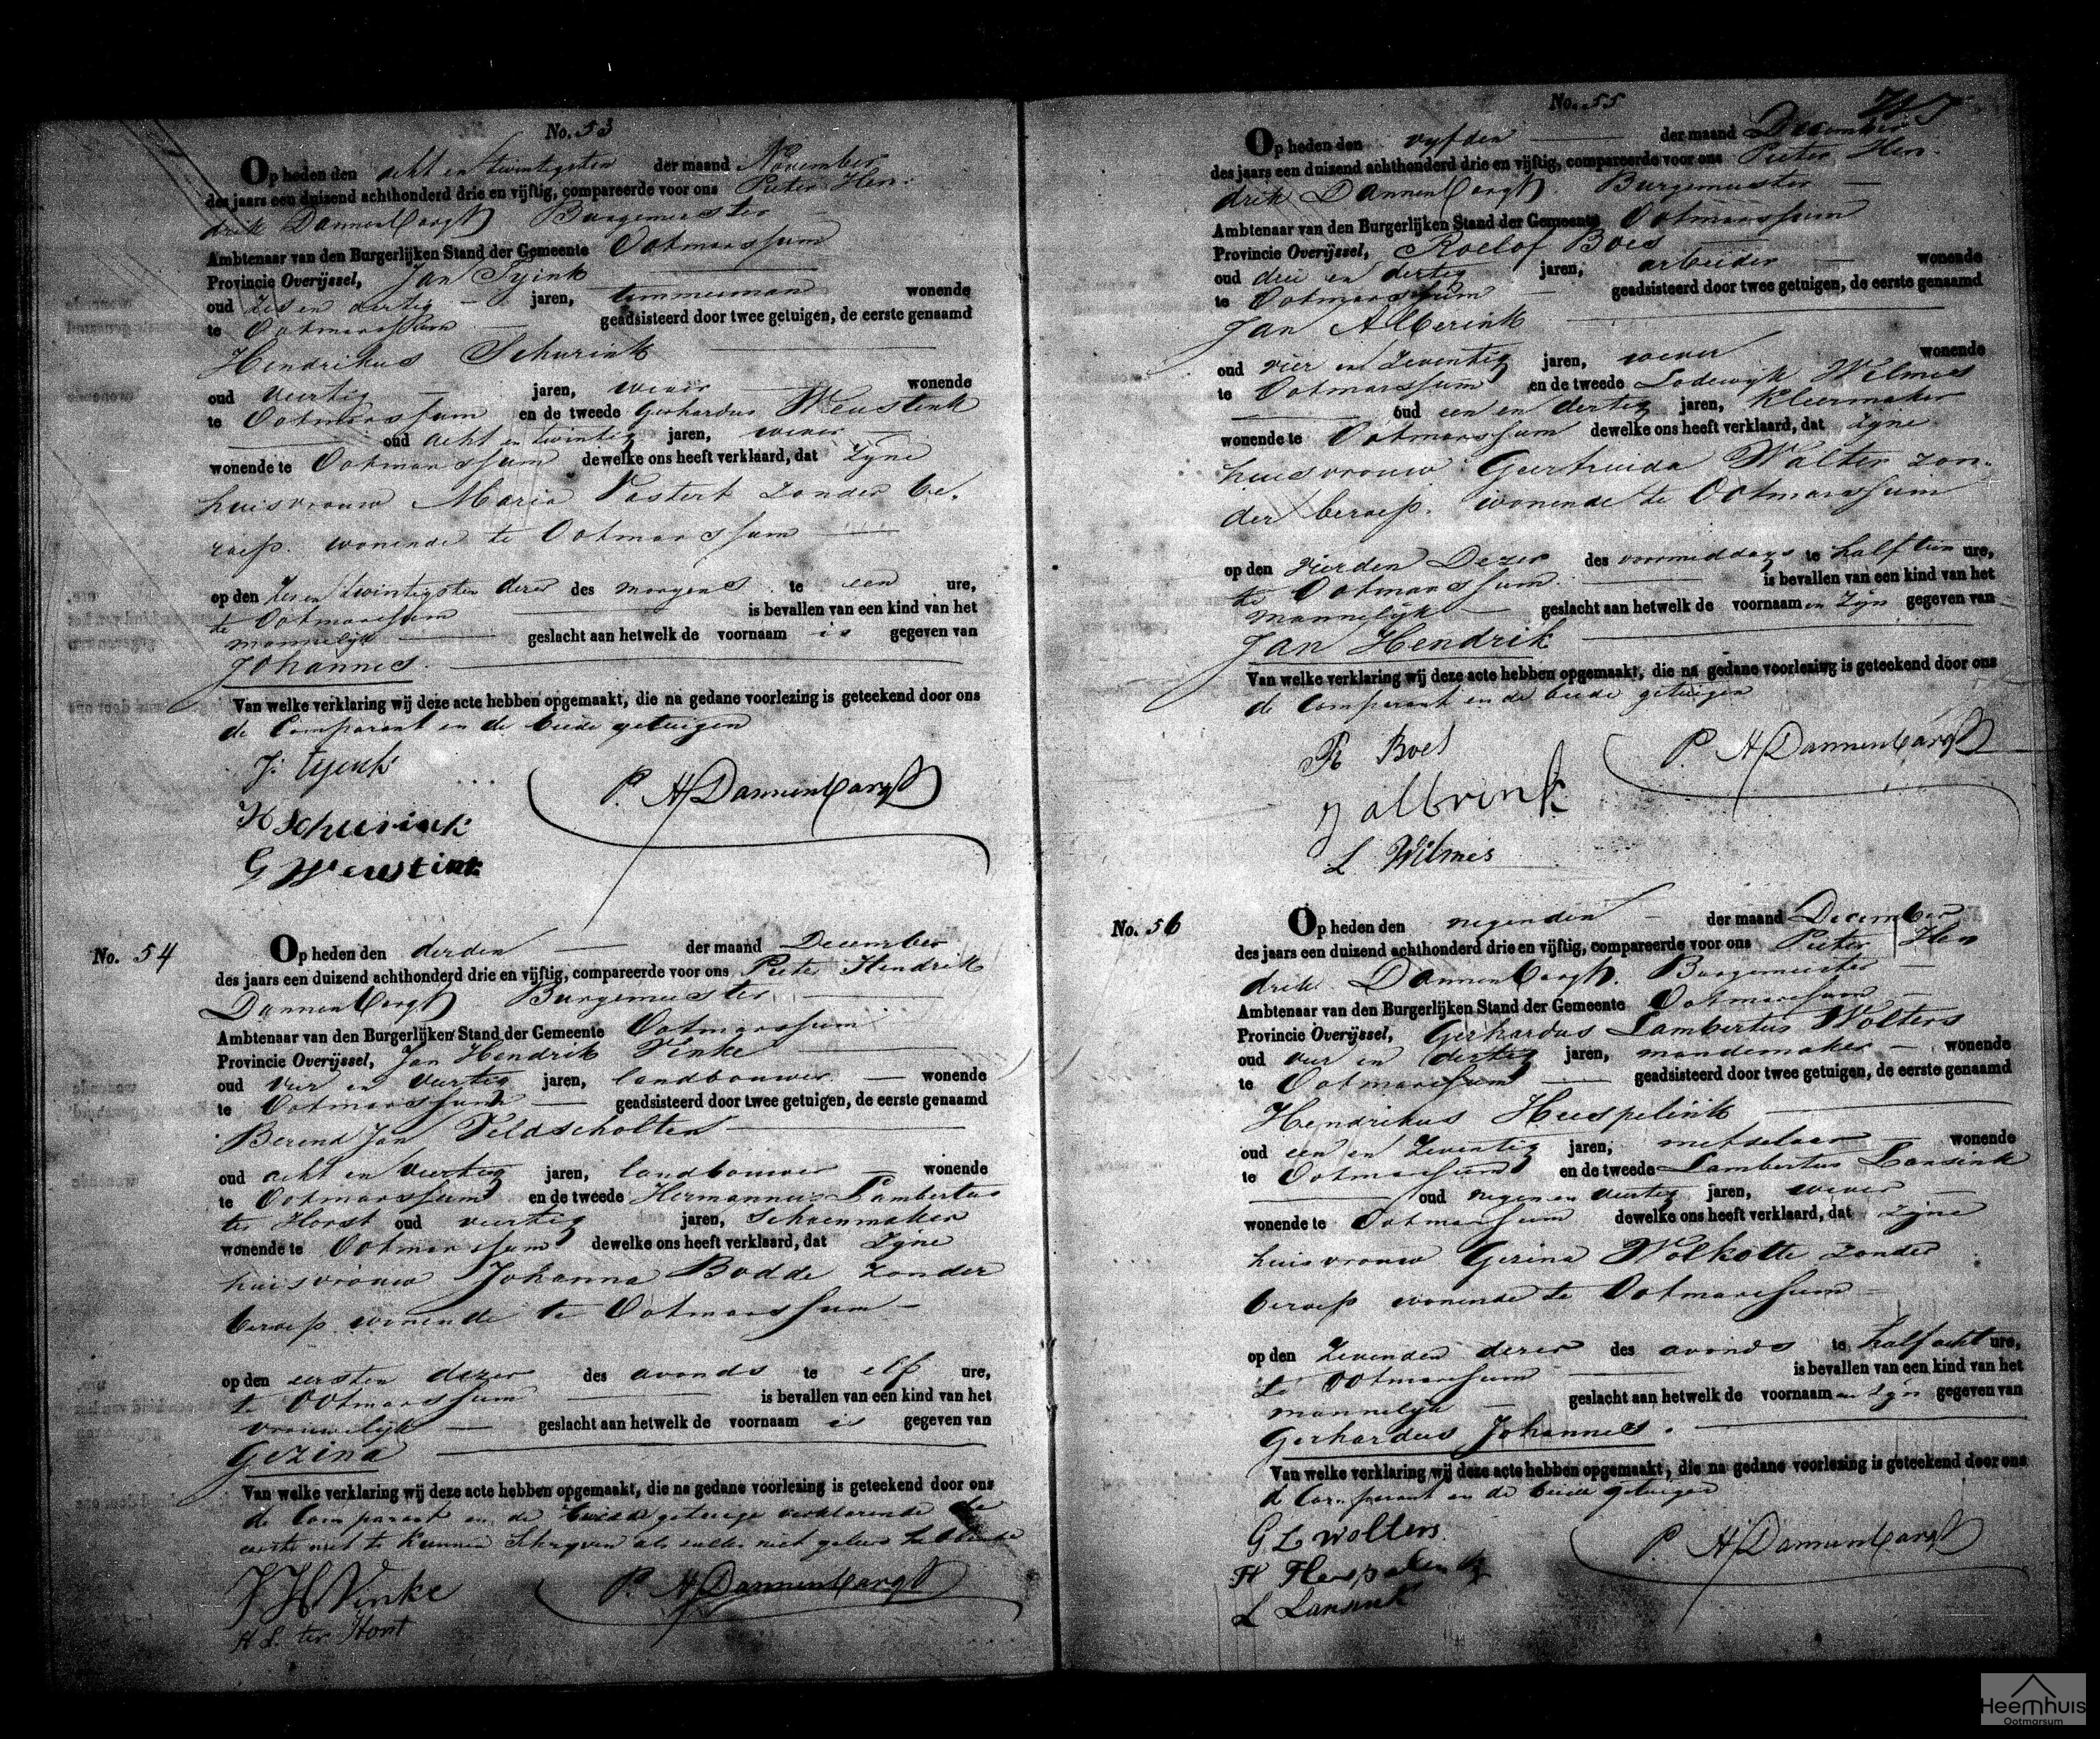 No. 53
Op heden den acht en twintigsten der maand November
des jaars een duizend achthonderd drie en vijftig, compareerde voor ons Pieter Hen-
drik Dannenbargh Burgemeester
Ambtenaar van den Burgerlijken Stand der Gemeente Ootmarssum
Provincie Overijssel, Jan Tyink
oud zes en dertig jaren, timmerman wonende
te Ootmarssum geadsisteerd door twee getuigen, de eerste genaamd
Hendrikus Schurink
oud veertig jaren, wever wonende
te Ootmarssum en de tweede Gerhardus Weustink
oud acht en twintig jaren, wever
wonende te Ootmarssum dewelke ons heeft verklaard, dat zyne
huisvrouw Maria Vostert zonder be-
roep. wonende te Ootmarssum
op den zes en twintigsten dezer des morgens te een ure,
te Ootmarssum is bevallen van een kind van het
mannelijk geslacht aan hetwelk de voornaam is gegeven van
Johannes.
Van welke verklaring wij deze acte hebben opgemaakt, die na gedane voorlezing is geteekend door ons
de Comparant en de beide getuigen
J: tyenk
H Schurink
G Weustink
P. H Dannenbargh
No. 54
Op heden den derden der maand December
des jaars een duizend achthonderd drie en vijftig, compareerde voor ons Pieter Hendrik
Dannenbargh Burgemeester
Ambtenaar van den Burgerlijken Stand der Gemeente Ootmarssum
Provincie Overijssel, Jan Hendrik Vinke
oud vier en veertig jaren, landbouwer wonende
te Ootmarssum geadsisteerd door twee getuigen, de eerste genaamd
Berend Jan Veldscholten
oud acht en veertig jaren, landbouwer wonende
te Ootmarssum en de tweede Hermannus Lambertus
ter Horst oud veertig jaren, schoenmaker
wonende te Ootmarssum dewelke ons heeft verklaard, dat zyne
huisvrouw Johanna Bodde zonder
beroep wonende te Ootmarssum
op den eersten dezer des avonds te elf ure,
te Ootmarssum is bevallen van een kind van het
vrouwelijk geslacht aan hetwelk de voornaam is gegeven van
Gezina
Van welke verklaring wij deze acte hebben opgemaakt, die na gedane voorlezing is geteekend door ons
de Comparant en de tweede getuige verklarende de
eerste niet te kunnen schryven als zulks niet geleerd hebbende
J H Vinke
H L. ter Horst
P. H Dannenbargh
No. 55
Op heden den vyfden der maand December
des jaars een duizend achthonderd drie en vijftig, compareerde voor ons Pieter Hen-
drik Dannenbargh. Burgemeester
Ambtenaar van den Burgerlijken Stand der Gemeente Ootmarssum
Provincie Overijssel, Roelof Boes
oud drie en dertig jaren, arbeider wonende
te Ootmarssum geadsisteerd door twee getuigen, de eerste genaamd
Jan Alberink
oud vier en zeventig jaren, wever wonende
te Ootmarssum en de tweede Lodewyk Wilmes
oud een en dertig jaren, kleermaker
wonende te Ootmarssum dewelke ons heeft verklaard, dat zyne
huisvrouw Geertruida Walter zon-
der beroep. wonende te Ootmarssum
op den vierden dezer des voormiddags te half tien ure,
te Ootmarssum is bevallen van een kind van het
mannelijk geslacht aan hetwelk de voornaamen zyn gegeven van
Jan Hendrik
Van welke verklaring wij deze acte hebben opgemaakt, die na gedane voorlezing is geteekend door ons
de Comparant en de beide getuigen
R Boes
J albrink
L Wilmes
P. H Dannenbargh
No. 56
Op heden den negenden der maand December
des jaars een duizend achthonderd drie en vijftig, compareerde voor ons Pieter Hen
drik Dannenbargh. Burgemeester
Ambtenaar van den Burgerlijken Stand der Gemeente Ootmarssum
Provincie Overijssel, Gerhardus Lambertus Wolters
oud vier en dertig jaren, mandemaker wonende
te Ootmarssum geadsisteerd door twee getuigen, de eerste genaamd
Hendrikus Huspelink
oud een en zeventig jaren, metselaar wonende
te Ootmarssum en de tweede Lambertus Lansink
oud negen en veertig jaren, wever
wonende te Ootmarssum dewelke ons heeft verklaard, dat zyne
huisvrouw Gezina Wolkotte zonder
beroep wonende te Ootmarssum
op den zevenden dezer des avonds te half acht ure,
te Ootmarssum is bevallen van een kind van het
mannelijk geslacht aan hetwelk de voornaamen zyn gegeven van
Gerhardus Johannes.
Van welke verklaring wij deze acte hebben opgemaakt, die na gedane voorlezing is geteekend door ons
de Comparant en de beide getuigen
G L Wolters
H
L Lansink
P. H Dannenbargh
Heemhuis
Ootmarsum